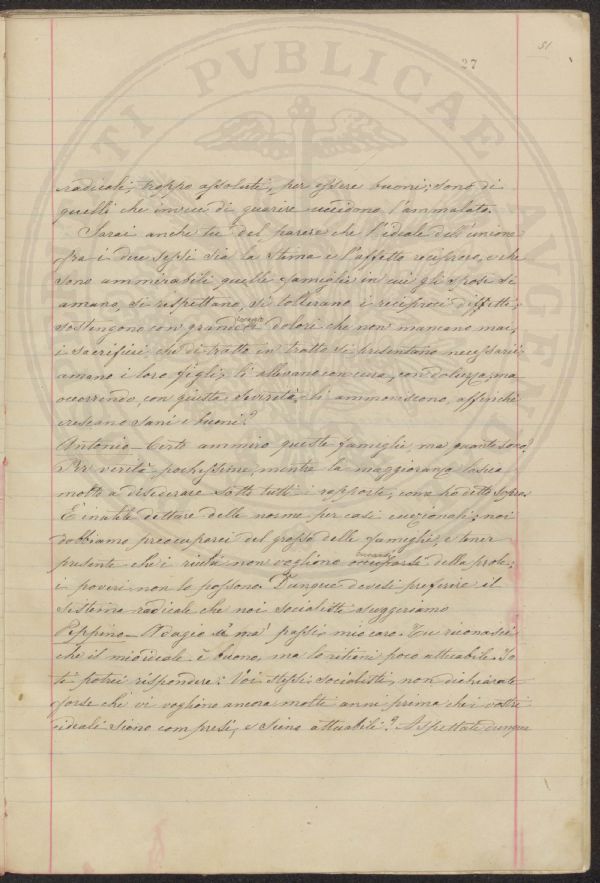 51
27
radicali, troppo assoluti, per essere buoni; sono di
quelli che invece di guarire uccidono l'ammalato.
Sarai anche tu del parere che l'ideale dell'unione
fra i due sessi sia la stima e l'affetto reciproco, e che
sono ammirabili quelle famiglie in cui gli sposi si
amano, si rispettano, si tollerano i reciproci diffetti,
sostengono con grande coraggio i dolori che non mancano mai,
i sacrifici che di tratto in tratto si presentano necessari;
amano i loro figli, li allevano con cura, con dolcezza, ma
occorrendo, con giusta severità, li ammoniscono, affinché
crescano sani e buoni?
Antonio - Certo ammiro queste famiglie, ma quante sono?
Per verità pochissime, mentre la maggioranza lascia
molto a desiderare sotto tutti i rapporti, come ho detto sopra.
È inutile dettare delle norme per casi eccezionali; noi
dobbiamo preoccuparci del grosso delle famiglie, e tener
presente che i ricchi non vogliono curarsi della prole;
i poveri non lo possono. Dunque devesi preferire il
sistema radicale che noi socialisti suggeriamo
Peppino - Adagio a' ma' passi, mio caro. Tu riconosci
che il mio ideale è buono, ma lo ritieni poco attuabile. Io
ti potrei rispondere: Voi stessi, socialisti, non dichiarate
forse che vi vogliono ancora molti anni prima che i vostri
ideali siano compresi, e sieno attuabili? Aspettate dunque
PVBLICAE